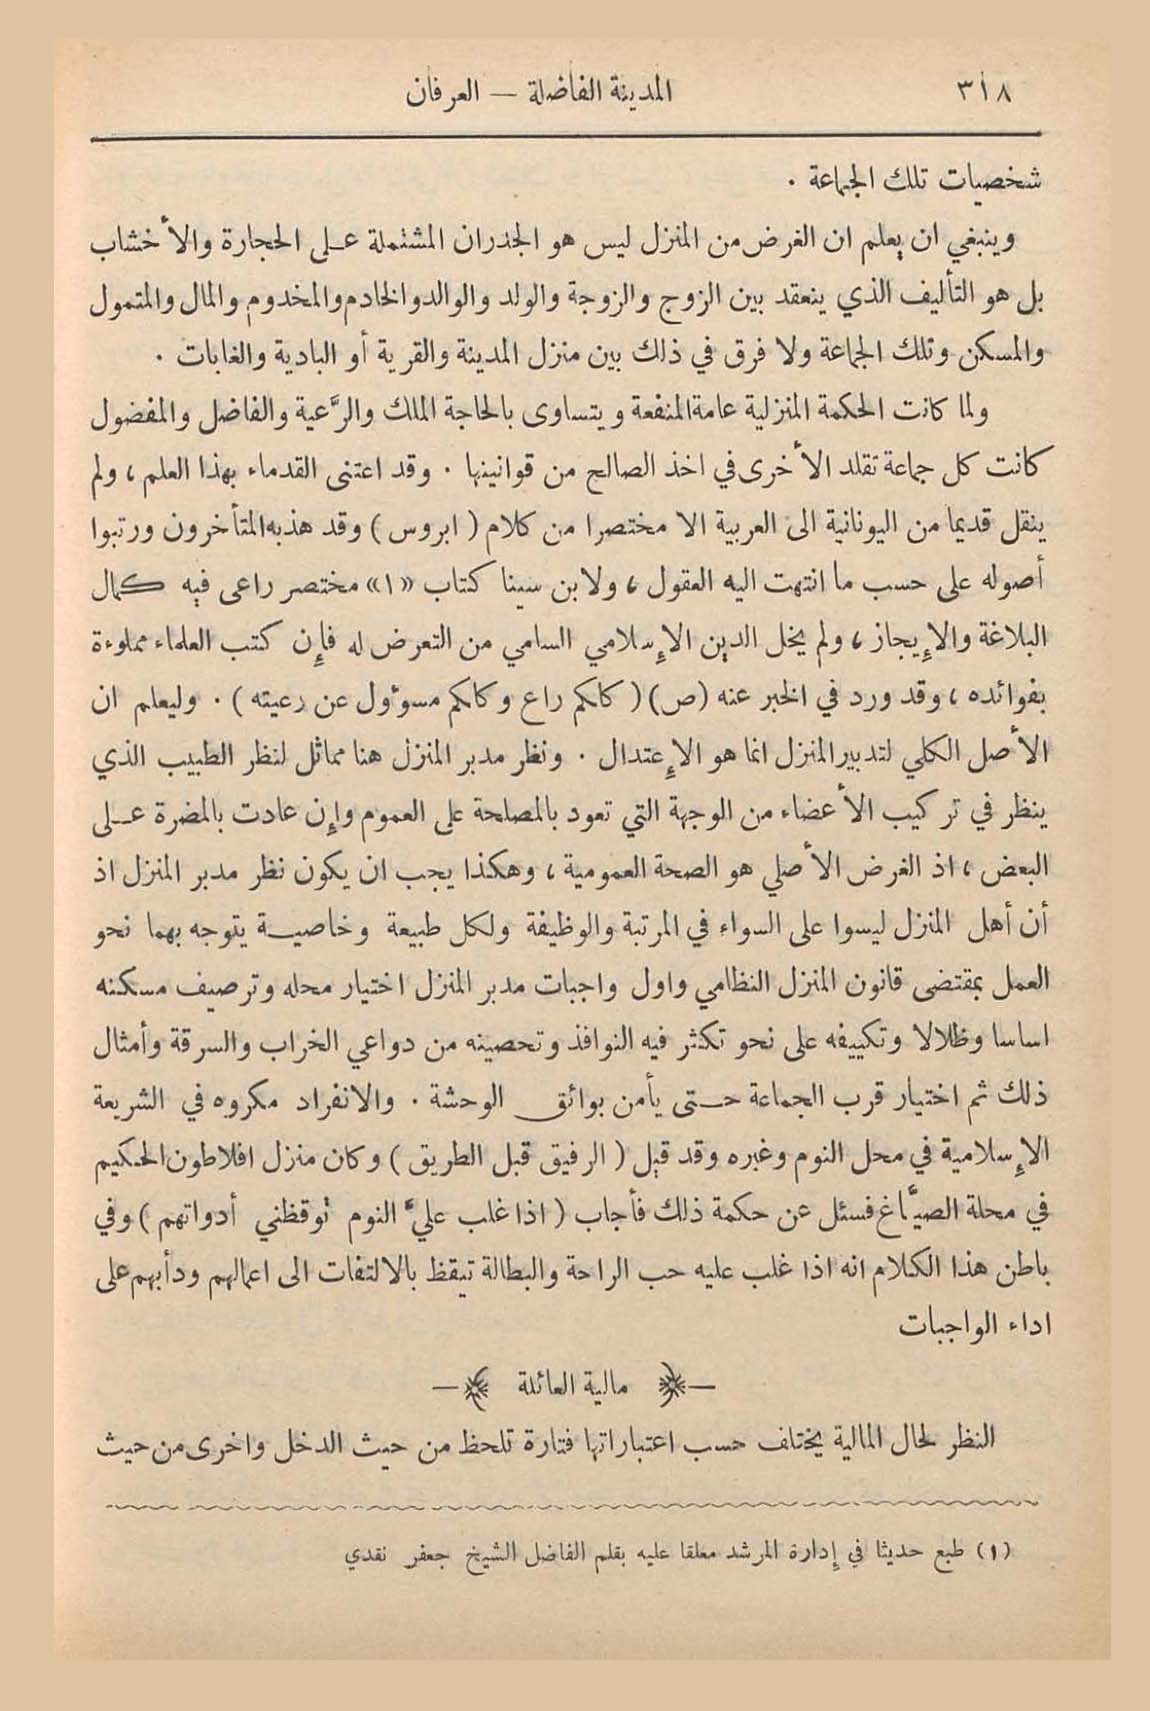 ٣١٨ المدينة الفاضلة — العرفان
شخصيات تلك الجماعة .
وينبغي ان يعلم ان الغرض من المنزل ليس هو الجدران المشتملة عـلى الحجارة والأخشاب
بل هو التأليف الذي ينعقد بين الزوج والزوجة والولد والوالد والخادم والمخدوم والمال والمتمول
والمسكن وتلك الجماعة ولا فرق في ذلك بين منزل المدينة والقرية أو البادية والغابات .
ولما كانت الحكمة المنزلية عامة المنفعة ويتساوى بالحاجة الملك والرَّعية والفاضل والمفضول
كانت كل جماعة تقلد الأخرى في اخذ الصالح من قوانينها . وقد اعتنى القدماء بهذا العلم ، ولم
ينقل قديما من اليونانية الى العربية الا مختصرا من كلام ( ابروس ) وقد هذبه المتأخرون ورتبوا
أصوله على حسب ما انتهت اليه العقول ، ولابن سينا كتاب «١» مختصر راعى فيه كمال
البلاغة والإيجاز ، ولم يخل الدين الإسلامي السامي من التعرض له فإن كتب العلماء مملوءة
بفوائده ، وقد ورد في الخبر عنه (ص) ( كلكم راع وكلكم مسوٴول عن رعيته ) . وليعلم ان
الأصل الكلي لتدبير المنزل انما هو الإعتدال . ونظر مدبر المنزل هنا مماثل لنظر الطبيب الذي
ينظر في تركيب الأعضاء من الوجهة التي تعود بالمصلحة على العموم وإن عادت بالمضرة عـلى
البعض ، اذ الغرض الأصلي هو الصحة العمومية ، وهكذا يجب ان يكون نظر مدبر المنزل اذ
أن أهل المنزل ليسوا على السواء في المرتبة والوظيفة ولكل طبيعة وخاصيـة يتوجه بهما نحو
العمل بمقتضى قانون المنزل النظامي واول واجبات مدبر المنزل اختيار محله وترصيف مسكنه
اساسا وظلالا وتكييفه على نحو تكثر فيه النوافذ وتحصينه من دواعي الخراب والسرقة وأمثال
ذلك ثم اختيار قرب الجماعة حـتى يأمن بوائق الوحشة . والانفراد مكروه في الشريعة
الإسلامية في محل النوم وغيره وقد قيل ( الرفيق قبل الطريق ) وكان منزل افلاطون الحكيم
في محلة الصيَّاغ فسئل عن حكمة ذلك فأجاب ( اذا غلب عليَّ النوم توقظني أدواتهم ) وفي
باطن هذا الكلام انه اذا غلب عليه حب الراحة والبطالة تيقظ بالالتفات الى اعمالهم ودأبهم على
اداء الواجبات
مالية العائلة
النظر لحال المالية يختلف حسب اعتباراتها فتارة تلحظ من حيث الدخل واخرى من حيث
(١) طبع حديثا في إدارة المرشد معلقا عليه بقلم الفاضل الشيخ جعفر نقدي